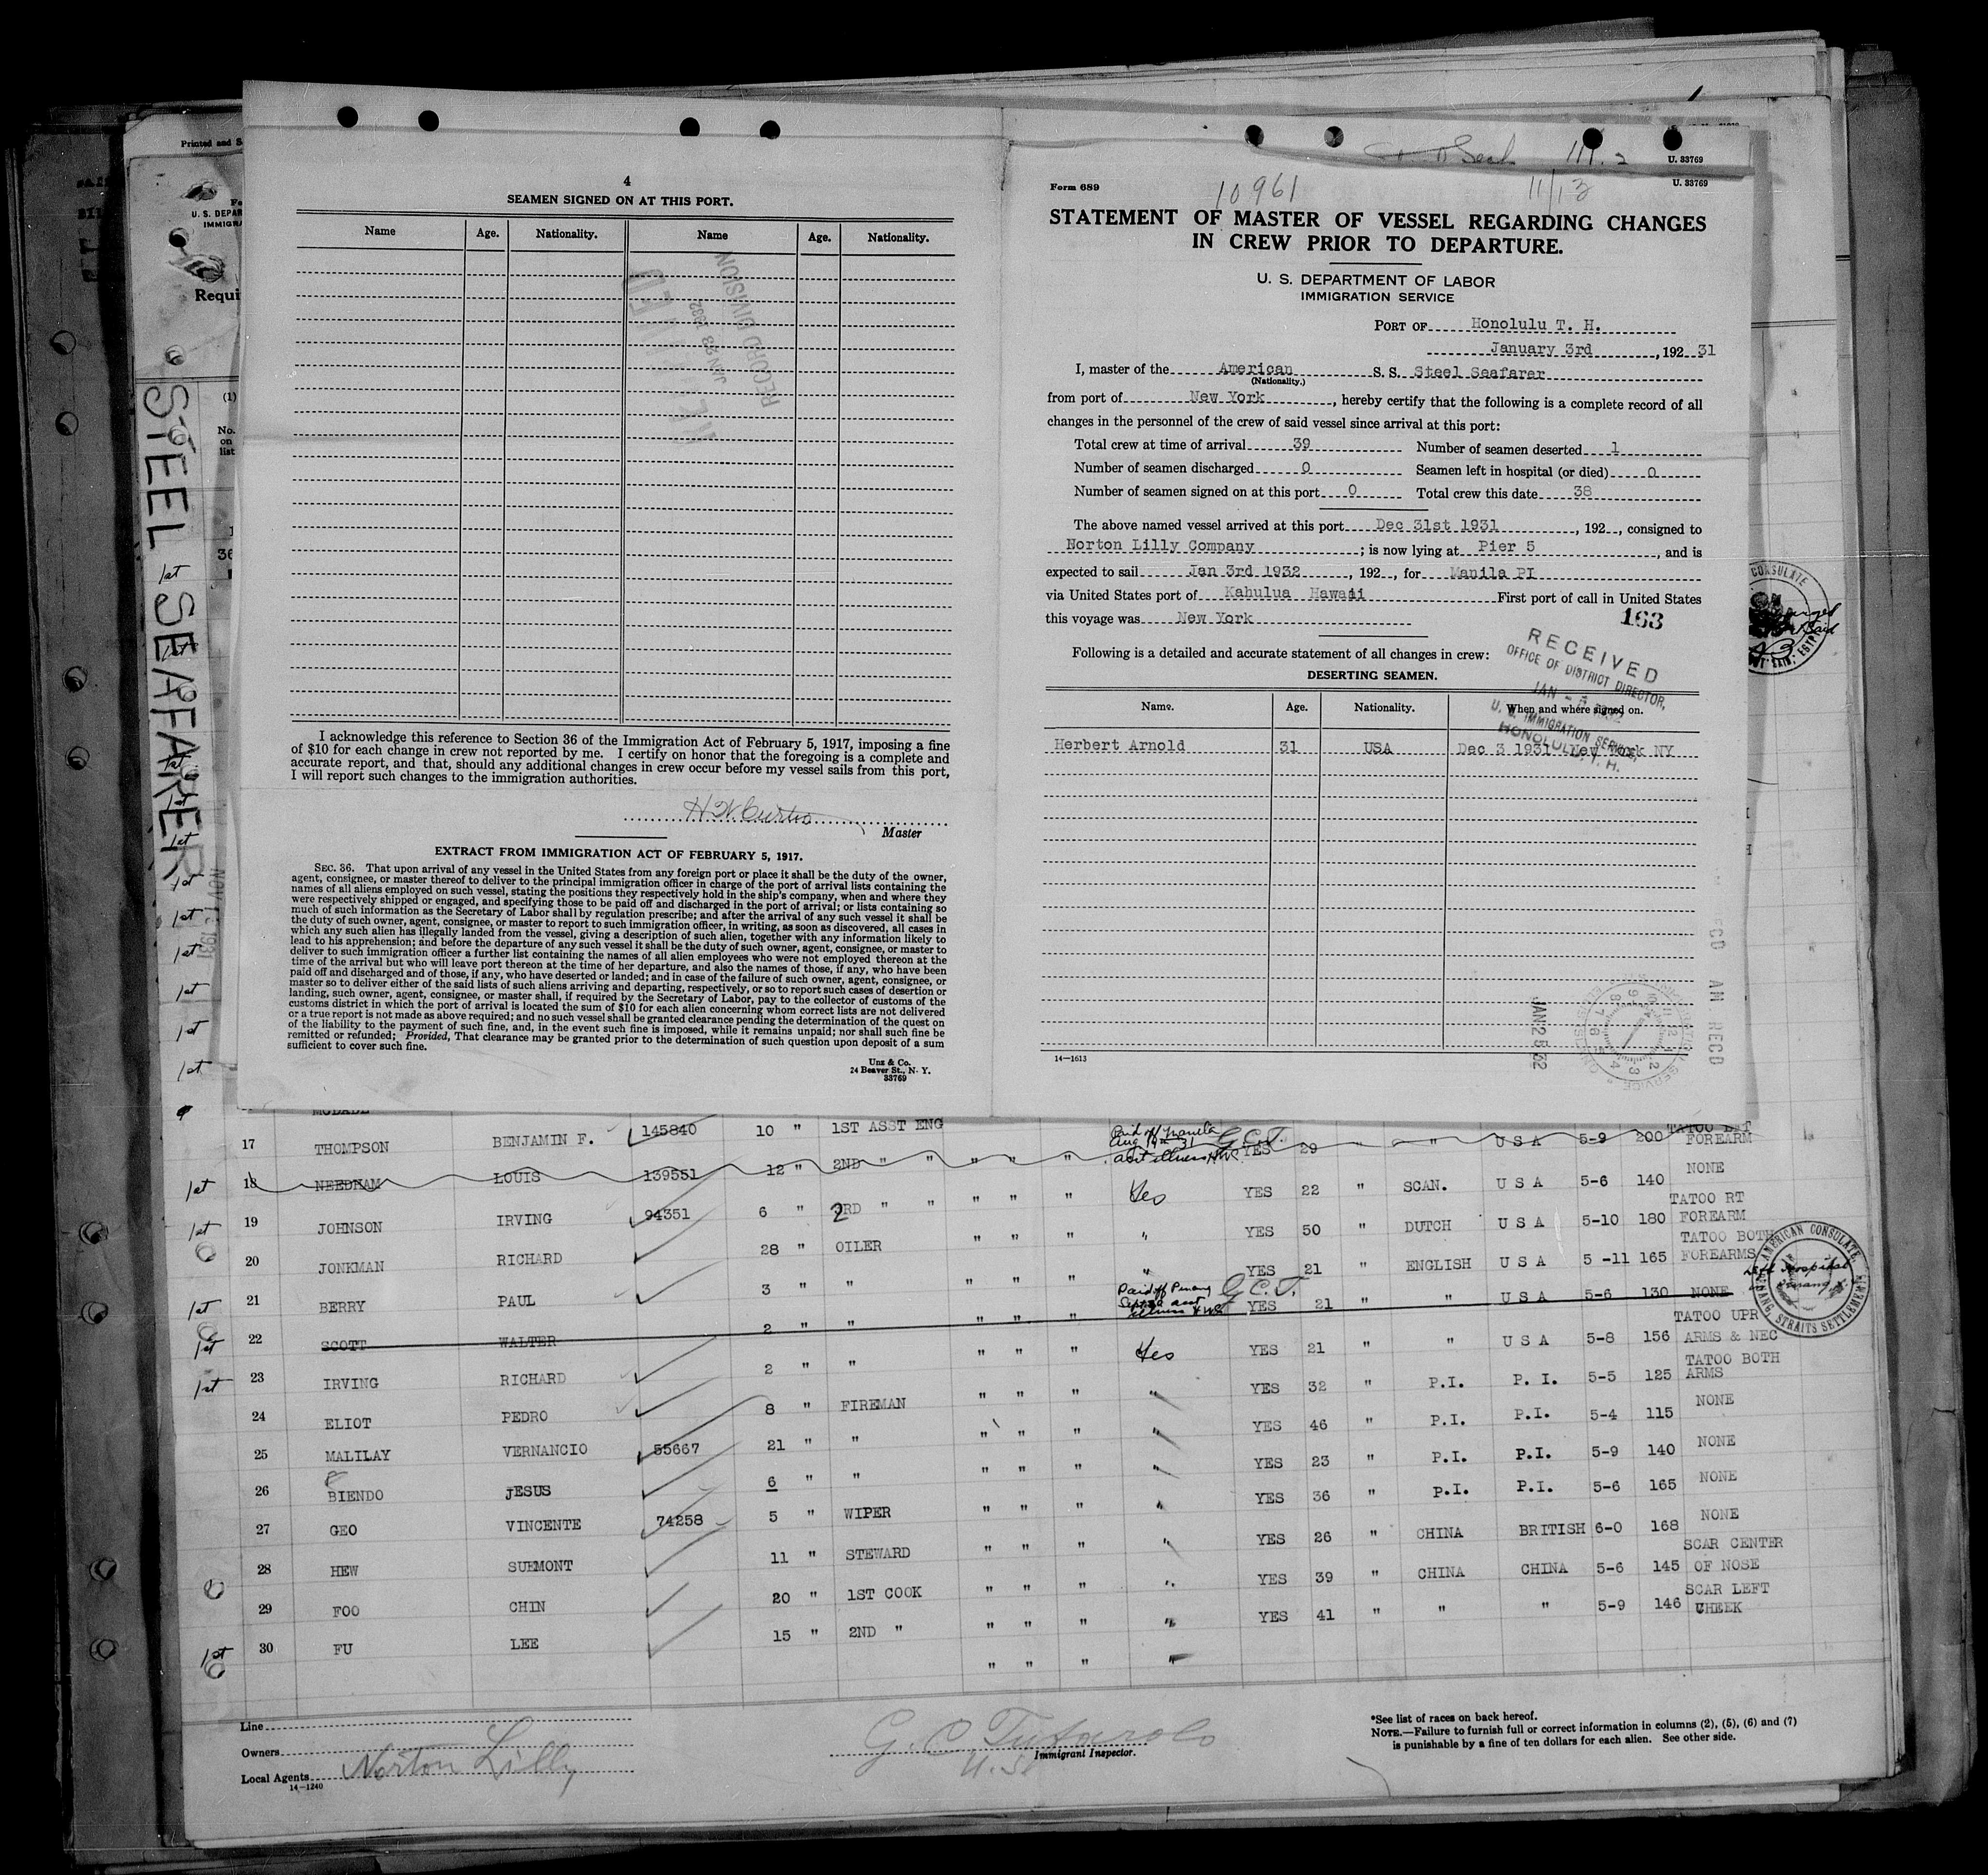 Printed and S
U. S. DEPAR
IMMIGRA
Requi
(1)
No.
on
list
STEEL SEAFARER
4
SEAMEN SIGNED ON AT THIS PORT.
Name Age. Nationality. Name Age. Nationality.
RECORD DIVISION
I acknowledge this reference to Section 36 of the Immigration Act of February 5, 1917, imposing a fine
of $10 for each change in crew not reported by me. I certify on honor that the foregoing is a complete and
accurate report, and that, should any additional changes in crew occur before my vessel sails from this port,
I will report such changes to the immigration authorities.
H W Curtis
Master
EXTRACT FROM IMMIGRATION ACT OF FEBRUARY 5, 1917.
SEC. 36. That upon arrival of any vessel in the United States from any foreign port or place it shall be the duty of the owner,
agent, consignee, or master thereof to deliver to the principal immigration officer in charge of the port of arrival lists containing the
names of all aliens employed on such vessel, stating the positions they respectively hold in the ship's company, when and where they
were respectively shipped or engaged, and specifying those to be paid off and discharged in the port of arrival; or lists containing so
much of such information as the Secretary of Labor shall by regulation prescribe; and after the arrival of any such vessel it shall be
the duty of such owner, agent, consignee, or master to report to such immigration officer, in writing, as soon as discovered, all cases in
which any such alien has illegally landed from the vessel, giving a description of such alien, together with any information likely to
lead to his apprehension; and before the departure of any such vessel it shall be the duty of such owner, agent, consignee, or master to
deliver to such immigration officer a further list containing the names of all alien employees who were not employed thereon at the
time of the arrival but who will leave port thereon at the time of her departure, and also the names of those, if any, who have been
paid off and discharged and of those, if any, who have deserted or landed; and in case of the failure of such owner, agent, consignee, or
master so to deliver either of the said lists of such aliens arriving and departing, respectively, or so to report such cases of desertion or
landing, such owner, agent, consignee, or master shall, if required by the Secretary of Labor, pay to the collector of customs of the
customs district in which the port of arrival is located the sum of $10 for each alien concerning whom correct lists are not delivered
or a true report is not made as above required; and no such vessel shall be granted clearance pending the determination of the quest on
of the liability to the payment of such fine, and, in the event such fine is imposed, while it remains unpaid; nor shall such fine be
remitted or refunded; Provided, That clearance may be granted prior to the determination of such question upon deposit of a sum
sufficient to cover such fine.
Unz & Co.
24 Beaver St., N. Y.
33769
U. 33769
Form 689 10961 11/13 U. 33769
STATEMENT OF MASTER OF VESSEL REGARDING CHANGES
IN CREW PRIOR TO DEPARTURE.
U. S. DEPARTMENT OF LABOR
IMMIGRATION SERVICE
PORT OF Honolulu T. H.
January 3rd , 192 31
I, master of the American S. S. Steel Seafarer
(Nationality.)
from port of New York , hereby certify that the following is a complete record of all
changes in the personnel of the crew of said vessel since arrival at this port:
Total crew at time of arrival 39 Number of seamen deserted 1
Number of seamen discharged 0 Seamen left in hospital (or died) 0
Number of seamen signed on at this port 0 Total crew this date 38
The above named vessel arrived at this port Dec 31st 1931 , 192 , consigned to
Norton Lilly Company ; is now lying at Pier 5 , and is
expected to sail Jan 3rd 1932 , 192 , for Manila PI
via United States port of Kahulua Hawaii First port of call in United States
this voyage was New York
163
Following is a detailed and accurate statement of all changes in crew:
RECEIVED
OFFICE OF DISTRICT DIRECTOR,
U. S. IMMIGRATION SERVICE,
HONOLULU, T. H.
DESERTING SEAMEN.
Name. Age. Nationality. When and where signed on.
Herbert Arnold 31 USA Dec 3 1931 New York NY
JAN 25 32
AM. RECD
14—1613
17 THOMPSON BENJAMIN F. 145840 10 " 1ST ASST ENG YES 29 " " USA 5-9 200 FOREARM
18 NEEDHAM LOUIS 139551 12 " 2ND " " " " " Yes YES 22 " SCAN. USA 5-6 140 NONE
19 JOHNSON IRVING 94351 6 " 3RD " " " " " " YES 50 " DUTCH USA 5-10 180 TATOO RT FOREARM
20 JONKMAN RICHARD 28 " OILER " " " " YES 21 " ENGLISH USA 5-11 165 TATOO BOTH FOREARMS
21 BERRY PAUL 3 " " " " " Paid off Penang G.C.T. YES 21 " " USA 5-6 130 NONE
22 SCOTT WALTER 2 " " " " " Yes YES 21 " " USA 5-8 156 TATOO UPR ARMS & NEC
23 IRVING RICHARD 2 " " " " " " YES 32 " P.I. P.I. 5-5 125 TATOO BOTH ARMS
24 ELIOT PEDRO 8 " FIREMAN " " " " YES 46 " P.I. P.I. 5-4 115 NONE
25 MALILAY VERNANCIO 55667 21 " " " " " " YES 23 " P.I. P.I. 5-9 140 NONE
26 BIENDO JESUS 6 " " " " " " YES 36 " P.I. P.I. 5-6 165 NONE
27 GEO VINCENTE 74258 5 " WIPER " " " " YES 26 " CHINA BRITISH 6-0 168 NONE
28 HEW SUEMONT 11 " STEWARD " " " " YES 39 " CHINA CHINA 5-6 145 SCAR CENTER OF NOSE
29 FOO CHIN 20 " 1ST COOK " " " " YES 41 " " " 5-9 146 SCAR LEFT CHEEK
30 FU LEE 15 " 2ND " " " " "
AMERICAN CONSULATE
STRAITS SETTLEMENTS
Line
Owners
Local Agents Norton Lilly
14—1240
Immigrant Inspector.
*See list of races on back hereof.
NOTE.—Failure to furnish full or correct information in columns (2), (5), (6) and (7)
is punishable by a fine of ten dollars for each alien. See other side.